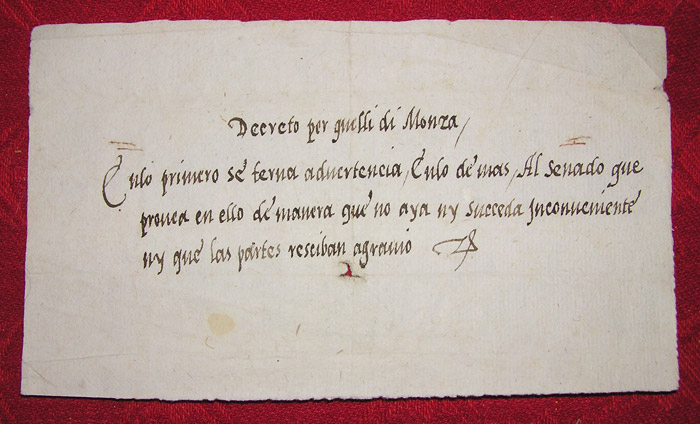 Decreto per quelli di Monza /
Enlo primero se terna aduertencia, Enlo de mas, Al Senado que
prouea en ello de manera que no aya ny succeda Inconueniente
ny que las partes resciban agrauio